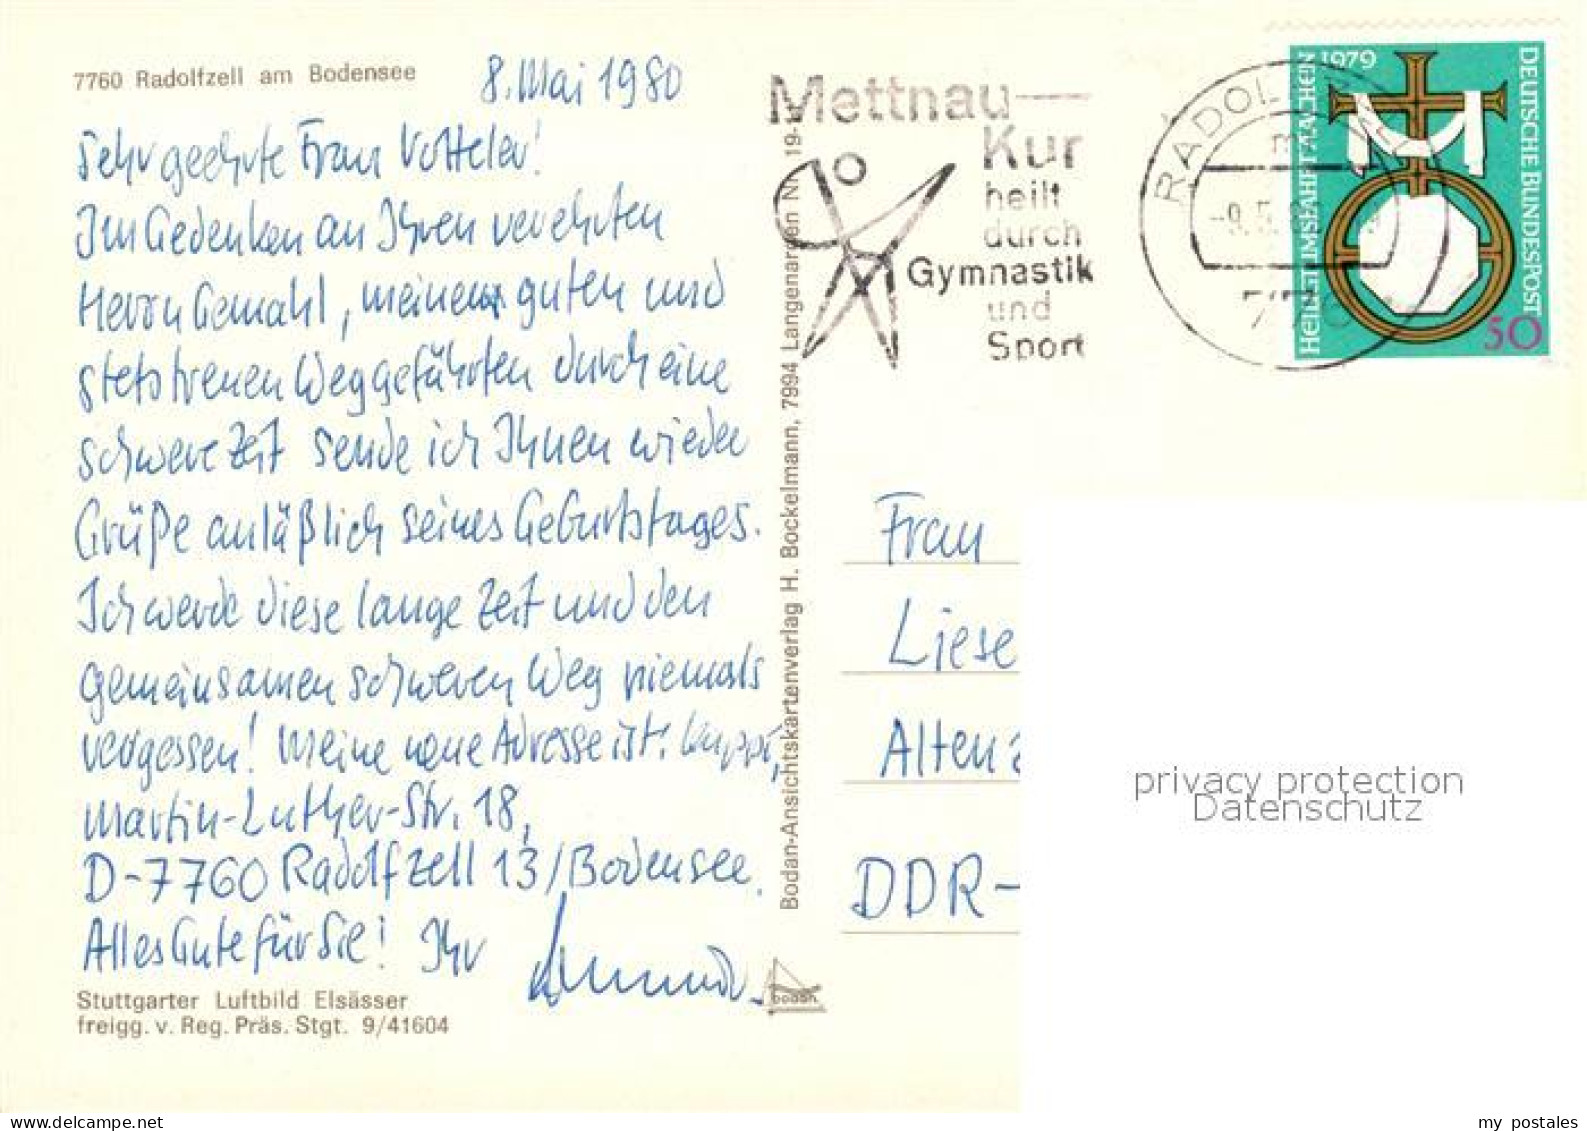 7760 Radolfzell am Bodensee
8. Mai 1980
Sehr geehrte Frau Votteler!
Im Gedenken an Ihren verehrten
Herrn Gemahl, meinem guten und
stets treuen Weggefährten durch eine
schwere Zeit sende ich Ihnen wieder
Grüße anläßlich seines Geburtstages.
Ich werde diese lange Zeit und den
gemeinsamen schweren Weg niemals
vergessen! Meine neue Adresse ist:
Martin-Luther-Str. 18,
D-7760 Radolfzell 13/Bodensee.
Alles Gute für Sie! Ihr
Stuttgarter Luftbild Elsässer
freigg. v. Reg. Präs. Stgt. 9/41604
Bodan-Ansichtskartenverlag H. Bockelmann, 7994 Langenargen Nr. 19-
bodan
Mettnau
Kur
heilt
durch
Gymnastik
und
Sport
RADOL
-9.5.80
776
HEILIGTUMSFAHRT AACHEN 1979
DEUTSCHE BUNDESPOST
50
Frau
Liese
Altenz
DDR-
privacy protection
Datenschutz
www.delcampe.net
my postales